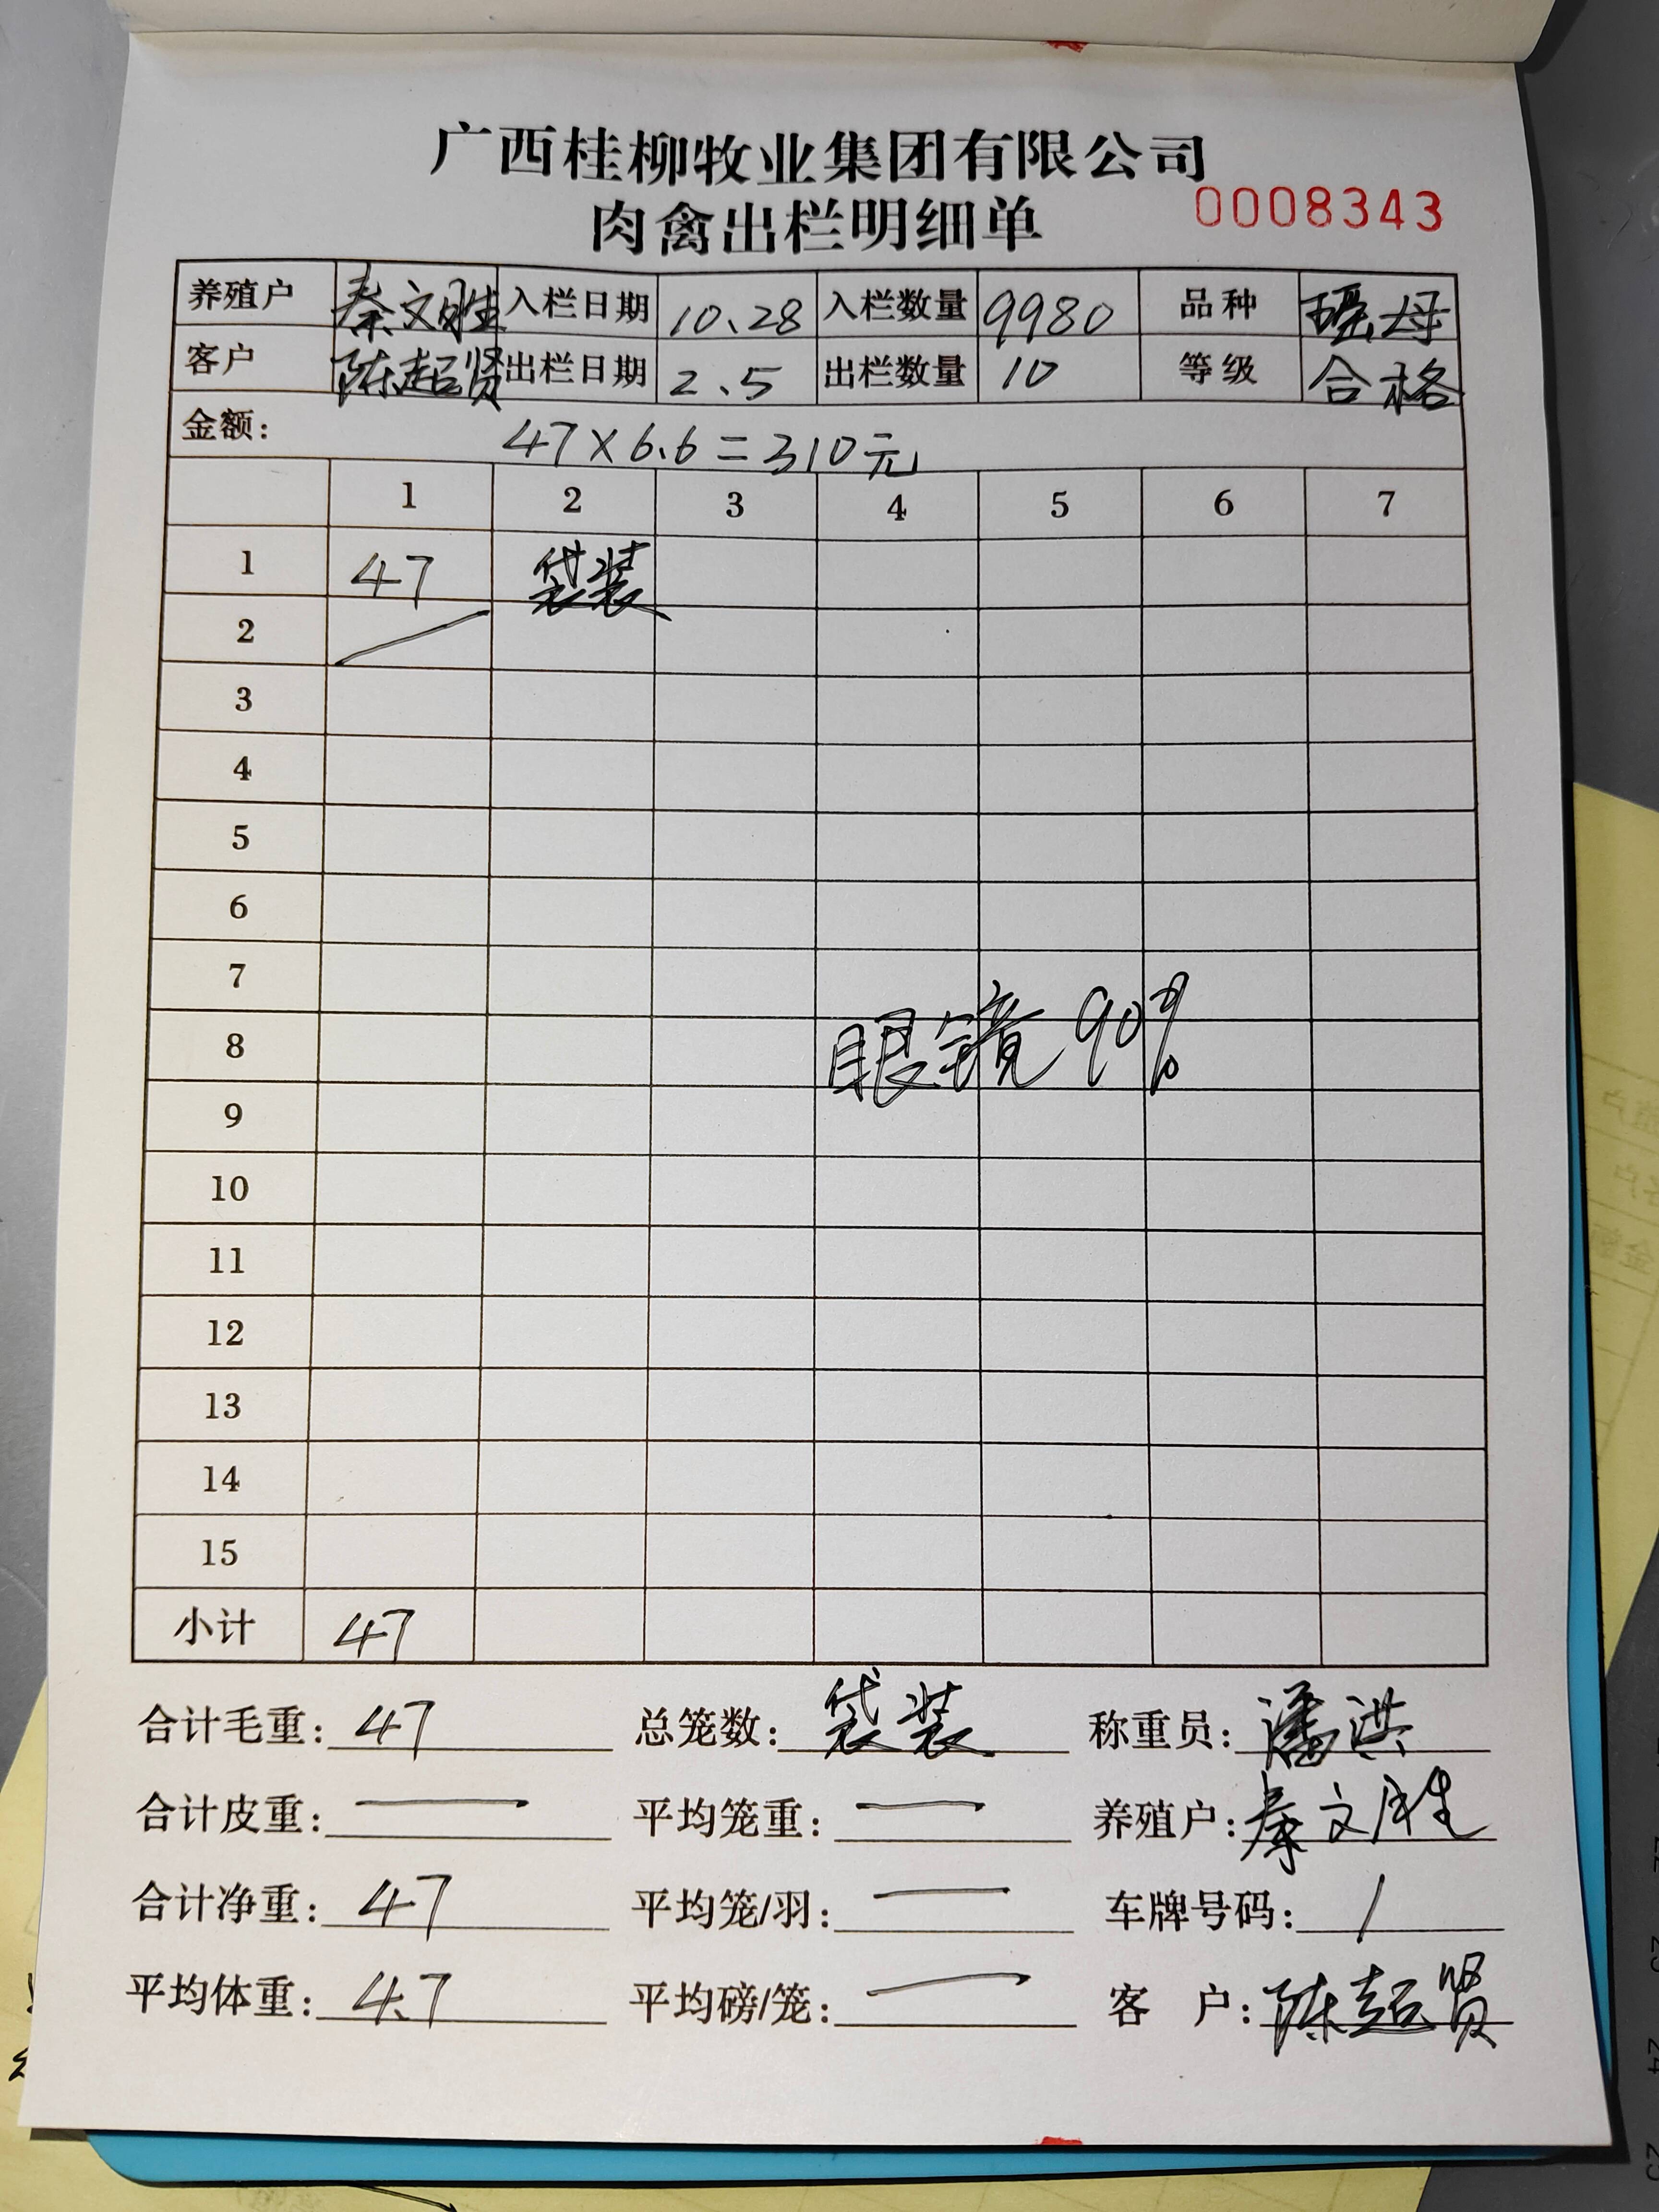 广西桂柳牧业集团有限公司
肉禽出栏明细单 0008343
养殖户 秦文胜 入栏日期 10.28 入栏数量 9980 品种 瑶母
客户 陈超贤 出栏日期 2.5 出栏数量 10 等级 合格
金额: 47×6.6=310元
1 2 3 4 5 6 7
1 47 袋装
2
3
4
5
6
7
8 眼镜90%
9
10
11
12
13
14
15
小计 47
合计毛重: 47 总笼数: 袋装 称重员: 潘洪
合计皮重: — 平均笼重: — 养殖户: 秦文胜
合计净重: 47 平均笼/羽: — 车牌号码: /
平均体重: 4.7 平均磅/笼: — 客 户: 陈超贤